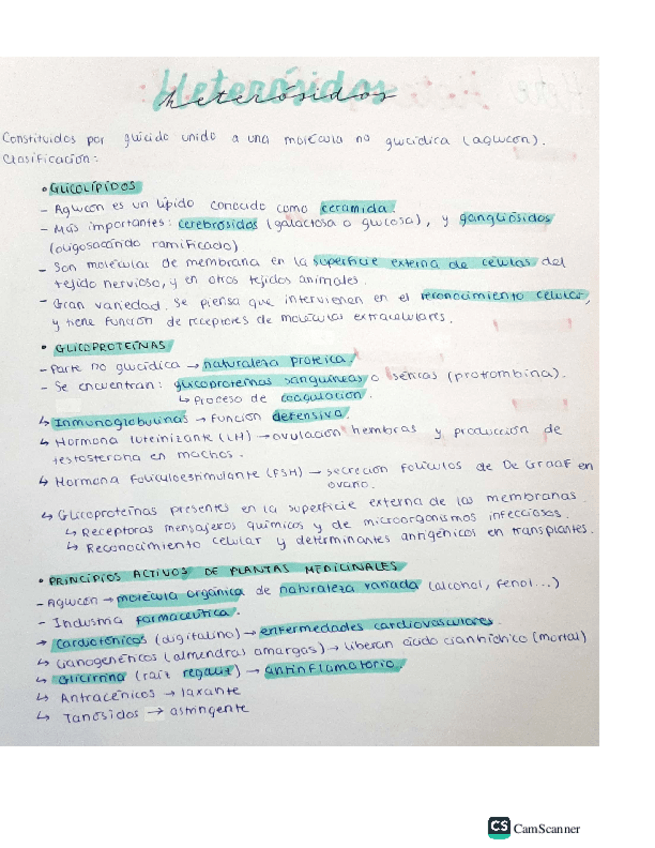 Heterósidos
heterósidos
Constituidos por glúcido unido a una molécula no glucídica (aglucón).
Clasificación:
• GLICOLÍPIDOS
- Aglucón es un lípido conocido como ceramida.
- Más importantes: cerebrósidos (galactosa o glucosa), y gangliósidos
(oligosacárido ramificado)
- Son moléculas de membrana en la superficie externa de células del
tejido nervioso, y en otros tejidos animales.
- Gran variedad. Se piensa que intervienen en el reconocimiento celular,
y tiene función de receptores de moléculas extracelulares.
• GLICOPROTEÍNAS
- Parte no glucídica → naturaleza proteica.
- Se encuentran: glicoproteínas sanguíneas o séricas (protrombina).
↳ Proceso de coagulación.
↳ Inmunoglobulinas → función defensiva.
↳ Hormona luteinizante (LH) → ovulación hembras y producción de
testosterona en machos.
↳ Hormona foliculoestimulante (FSH) → secreción folículos de De Graaf en
ovario.
↳ Glicoproteínas presentes en la superficie externa de las membranas.
↳ Receptoras mensajeros químicos y de microorganismos infecciosos.
↳ Reconocimiento celular y determinantes antigénicos en transplantes.
• PRINCIPIOS ACTIVOS DE PLANTAS MEDICINALES
- Aglucón → molécula orgánica de naturaleza variada (alcohol, fenol...)
- Industria farmaceútica.
→ Cardiotónicos (digitalino) → enfermedades cardiovasculares.
↳ Cianogenéticos (almendras amargas) → liberan ácido cianhídrico (mortal)
↳ Glicirrina (raíz regaliz) → antinflamatorio.
↳ Antracénicos → laxante
↳ Tanósidos → astringente
CS CamScanner